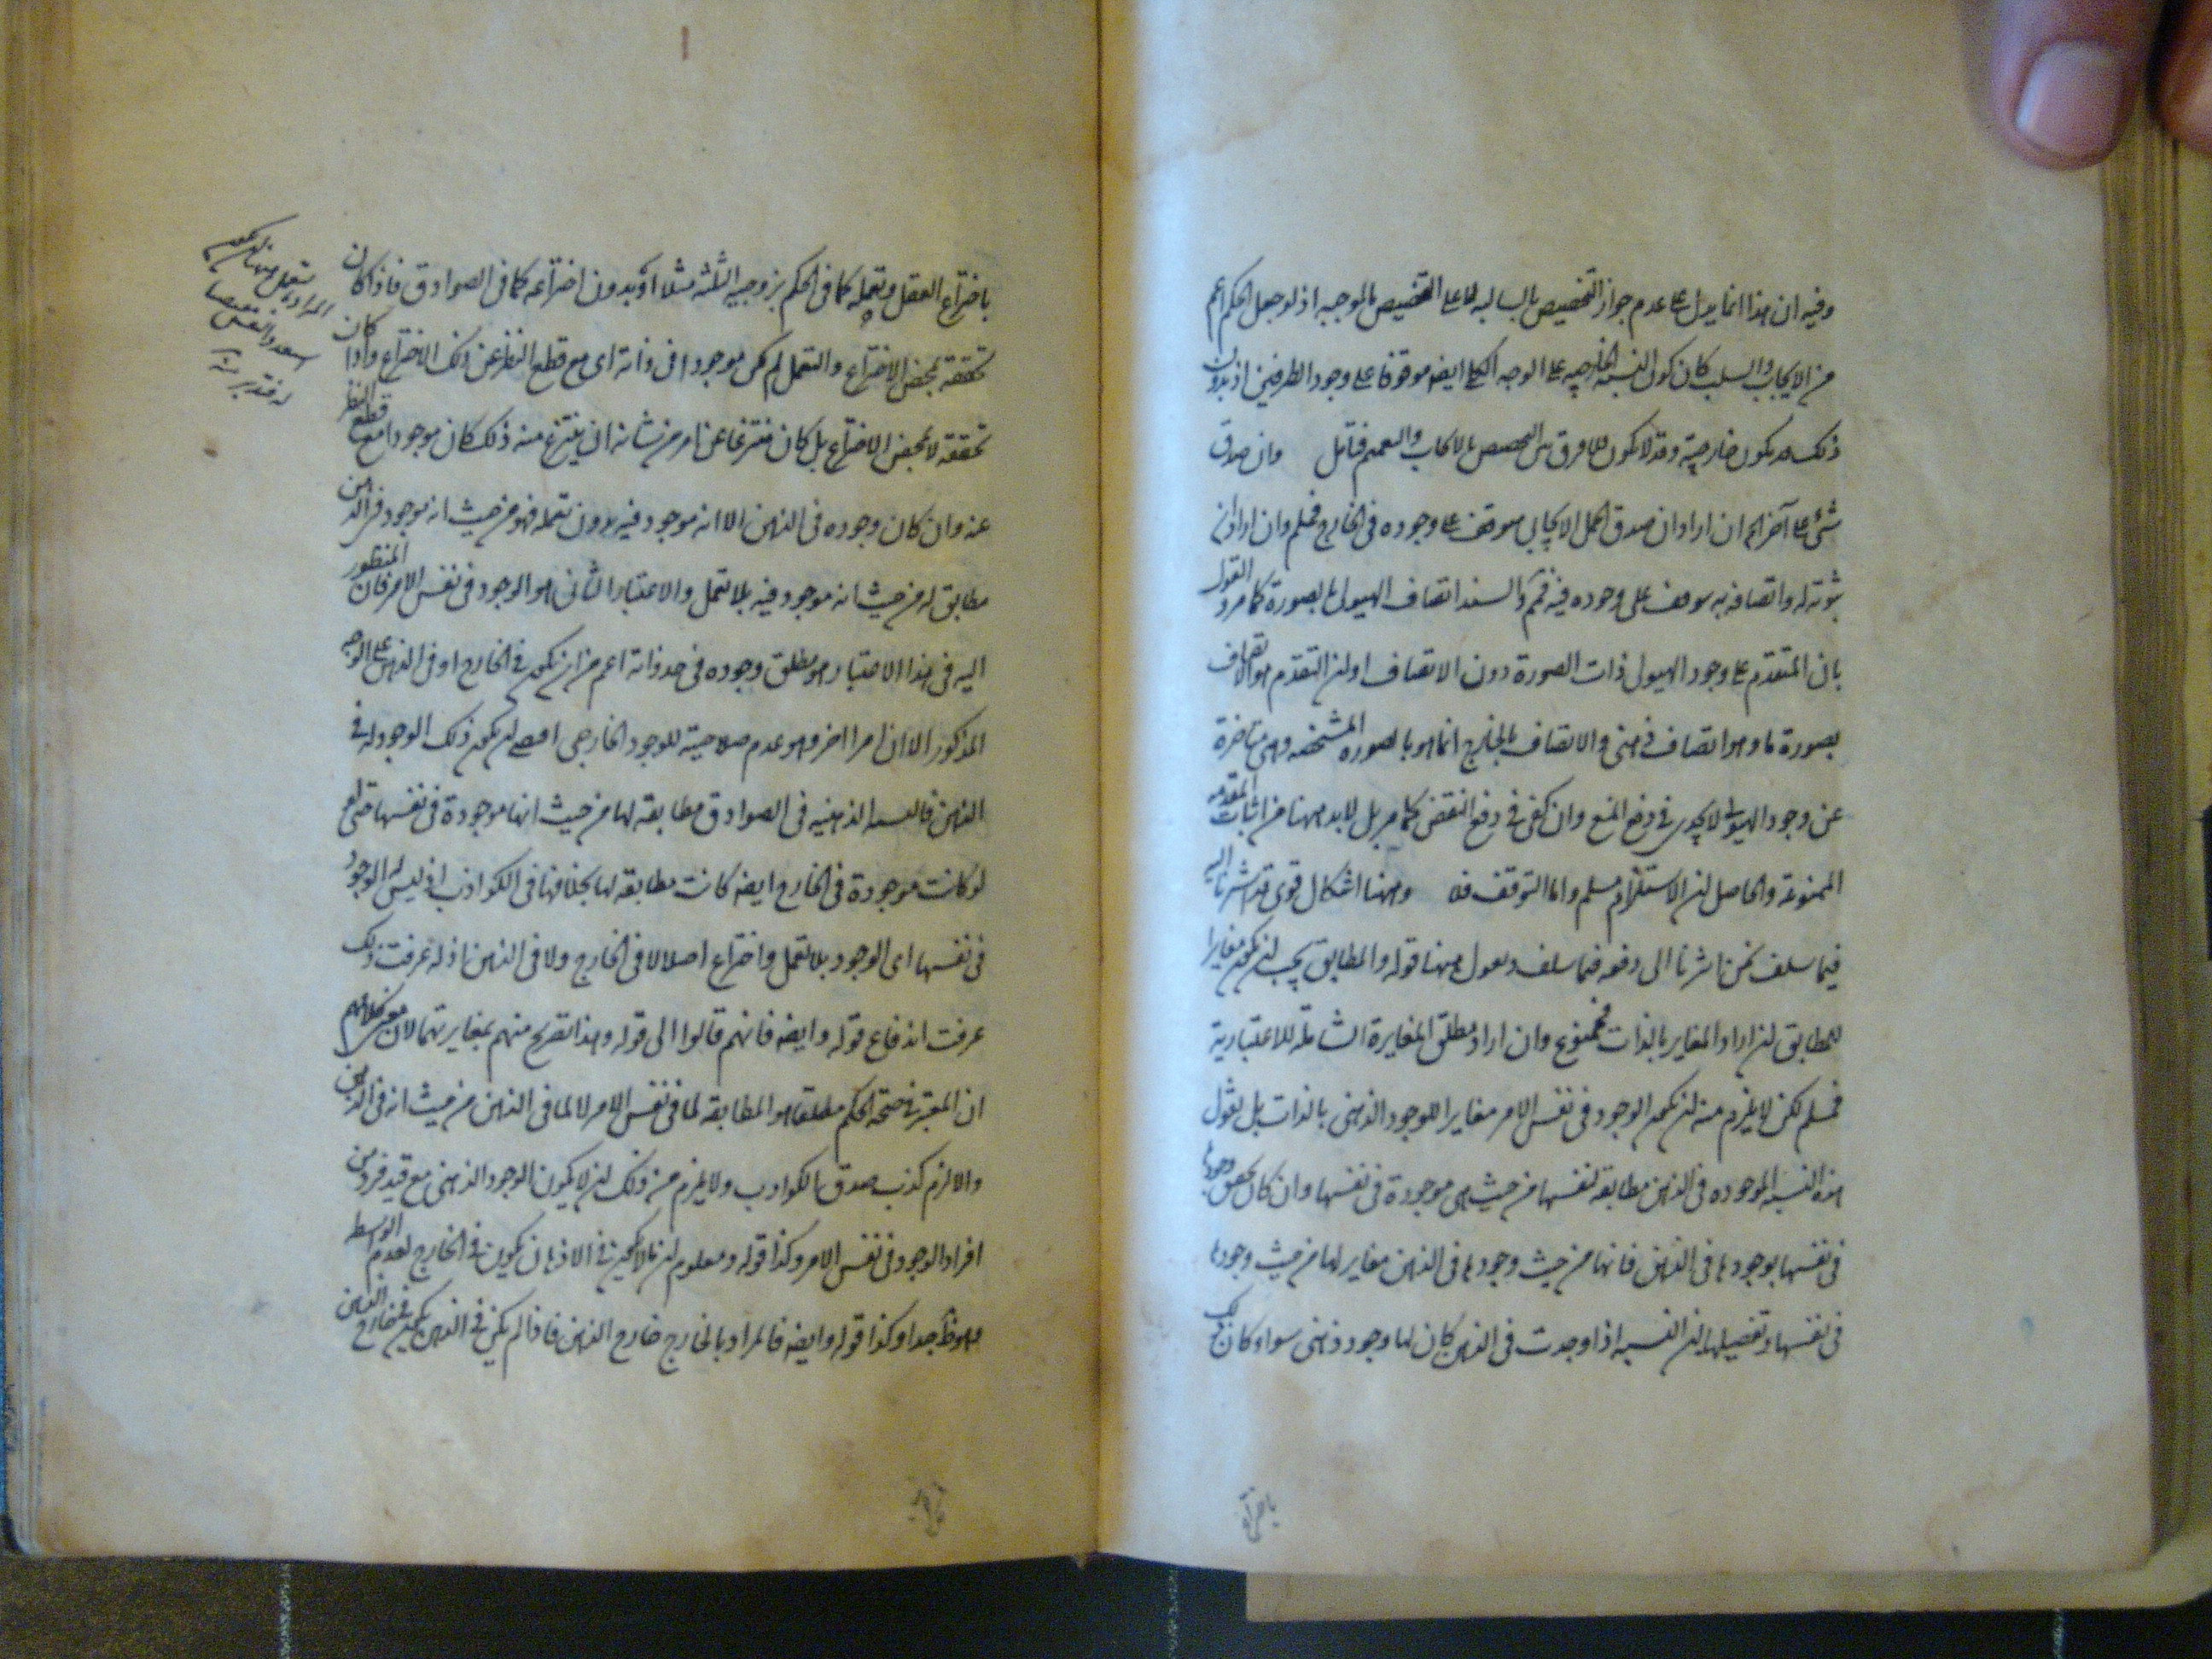 وفيه ان هذا انما يدل على عدم جواز التخصيص بالسالبه لا على التخصيص بالموجبه اذ لو جعل الحكم اعم
من الايجاب والسلب كان كون النسبه الخارجيه على الوجه الكلى ايضه موقوفا على وجود الطرفين اذ بدون
ذلك قد يكون خارجية وقد لا يكون فلا فرق بين التخصيص بالايجاب والتعميم فتامل وان صدق
شئ على آخر الخ ان اراد ان صدق الحمل الايجابى موقوف على وجوده فى الخارج فمسلم وان اراد ان
ثبوته له واتصافه به موقوف على وجوده فيه فم والسند اتصاف الهيولى بالصورة كما مر والقول
بان المتقدم على وجود الهيولى ذات الصورة دون الاتصاف او لن التقدم هو الاتصاف
بصورة ما وهو اتصاف ذهنى والاتصاف بالخارج انما هو بالصوره المشخصه وهى متاخرة
عن وجود الهيولى لا يجدى فى دفع المنع وان كفى فى دفع النقض كما مر بل لابد ههنا من اثبات المقدمه
الممنوعة والحاصل لن الاستلزام مسلم واما التوقف فلا وههنا اشكال قوى قد اشرنا اليه
فيما سلف نحن اشرنا الى دفعه فيما سلف ونقول ههنا قوله والمطابق يجب لن يكون مغايرا
للمطابق لن اراد المغاير بالذات فممنوع وان اراد مطلق المغايرة الشاملة للاعتبارية
فمسلم لكن لا يلزم منه لن يكون الوجود فى نفس الامر مغايرا للوجود الذهنى بالذات بل نقول
هذه النسبه الموجوده فى الذهن مطابقه لنفسها من حيث هى موجودة فى نفسها وان كان تحقق وجودها
فى نفسها بوجودها فى الذهن فانها من حيث وجودها فى الذهن مغاير لها من حيث وجودها
فى نفسها وتفصيلها لن النسبه اذا وجدت فى الذهن كان لها وجود ذهنى سواء كان ذلك
باختراع
باختراع العقل وتعمله كما فى الحكم بزوجيه الثلثه مثلا او بدون اختراعه كما فى الصوادق فاذا كان
تحققه لمحض الاختراع والتعمل لم يكن موجودا فى ذاته اى مع قطع النظر عن ذلك الاختراع واذا كان
تحققه لا بمحض الاختراع بل كان منتزعا عن امر من شانه ان ينتزع منه ذلك كان موجودا مع قطع النظر
عنه وان كان وجوده فى الذهن الا انه موجود فيه بدون تعمله فهو من حيث انه موجود فى الذهن
مطابق له من حيث انه موجود فيه بلا تعمل والاعتبار الثانى هو الوجود فى نفس الامر فان المنظور
اليه فى هذا الاعتبار هو مطلق وجوده فى حد ذاته اعم من ان يكون فى الخارج او فى الذهن على الوجه
المذكور الا ان امرا اخر وهو عدم صلاحيته للوجود الخارجى اقتضى لن يكون ذلك الوجود له فى
الذهن فالنسبه الذهنيه فى الصوادق مطابقه لها من حيث انها موجودة فى نفسها حتى
لو كانت موجودة فى الخارج ايضه كانت مطابقه لها بخلافها فى الكواذب اذ ليس له الوجود
فى نفسها اى الوجود بلا تعمل واختراع اصلا لا فى الخارج ولا فى الذهن اذا عرفت ذلك
عرفت اندفاع قوله وايضه فانهم قالوا الى قوله وهذا تصريح منهم بمغايرتهما لان معنى كلامهم
ان المعتبر فى صحة الحكم مطلقا هو المطابقه لما فى نفس الامر لا لما فى الذهن من حيث انه فى الذهن
والا لزم كذب صدق الكواذب ولا يلزم من ذلك لن لا يكون الوجود الذهنى مع قيد فردا من
افراد الوجود فى نفس الامر وكذا قوله ومعلوم لن ما لا يكون فى الاذهان يكون فى الخارج لعدم الوسط
ملحوظ جدا وكذا قوله وايضه فالمراد بالخارج خارج الذهن فاذا لم يكن فى الذهن يكون فى خارج الذهن